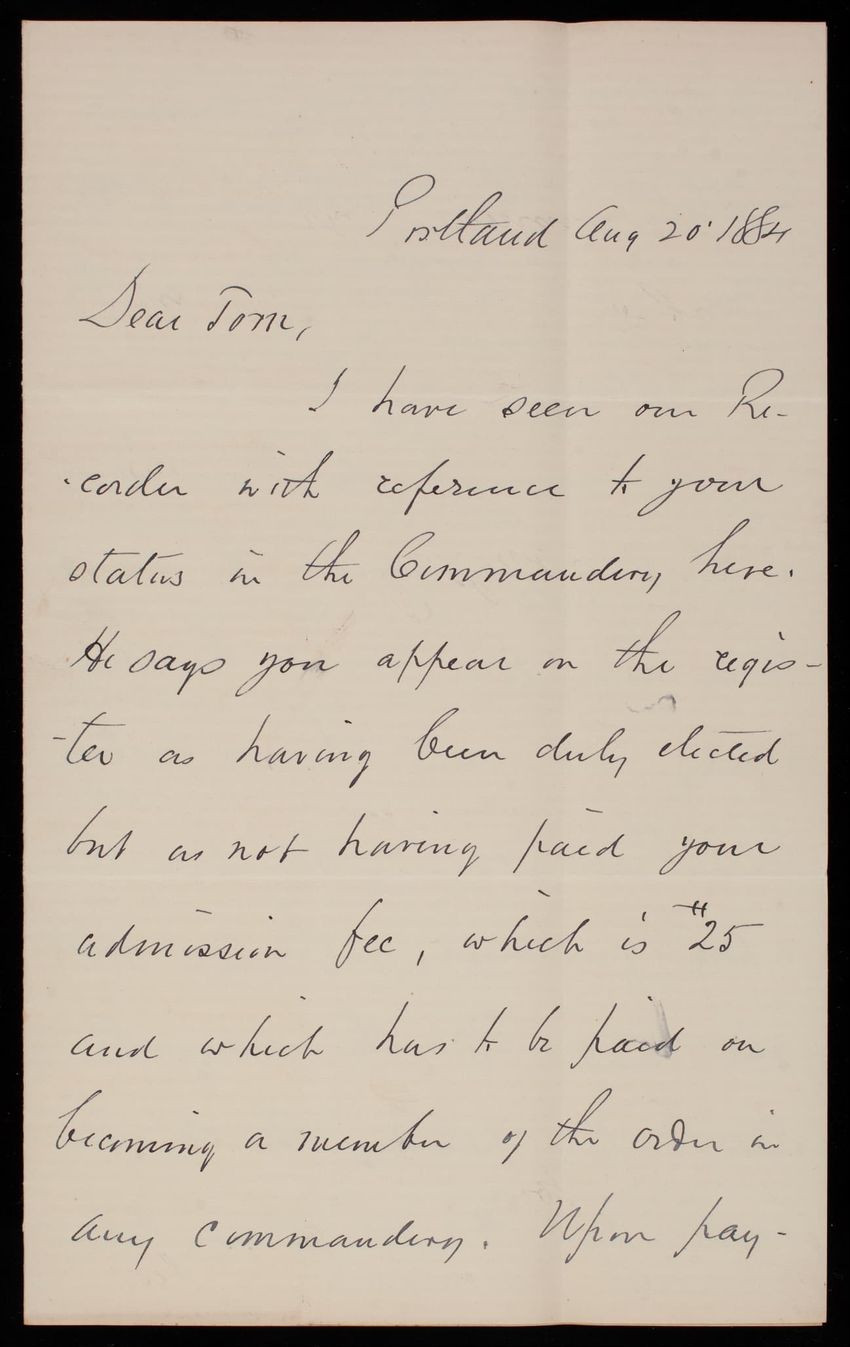 Portland Aug 20' 1884
Dear Tom,
I have seen our Re-
-corder with reference to your
status in the Commandery here.
He says you appear on the regis-
-ter as having been duly elected
but as not having paid your
admission fee, which is $25
and which has to be paid on
becoming a member of the order in
any commandery. Upon pay-